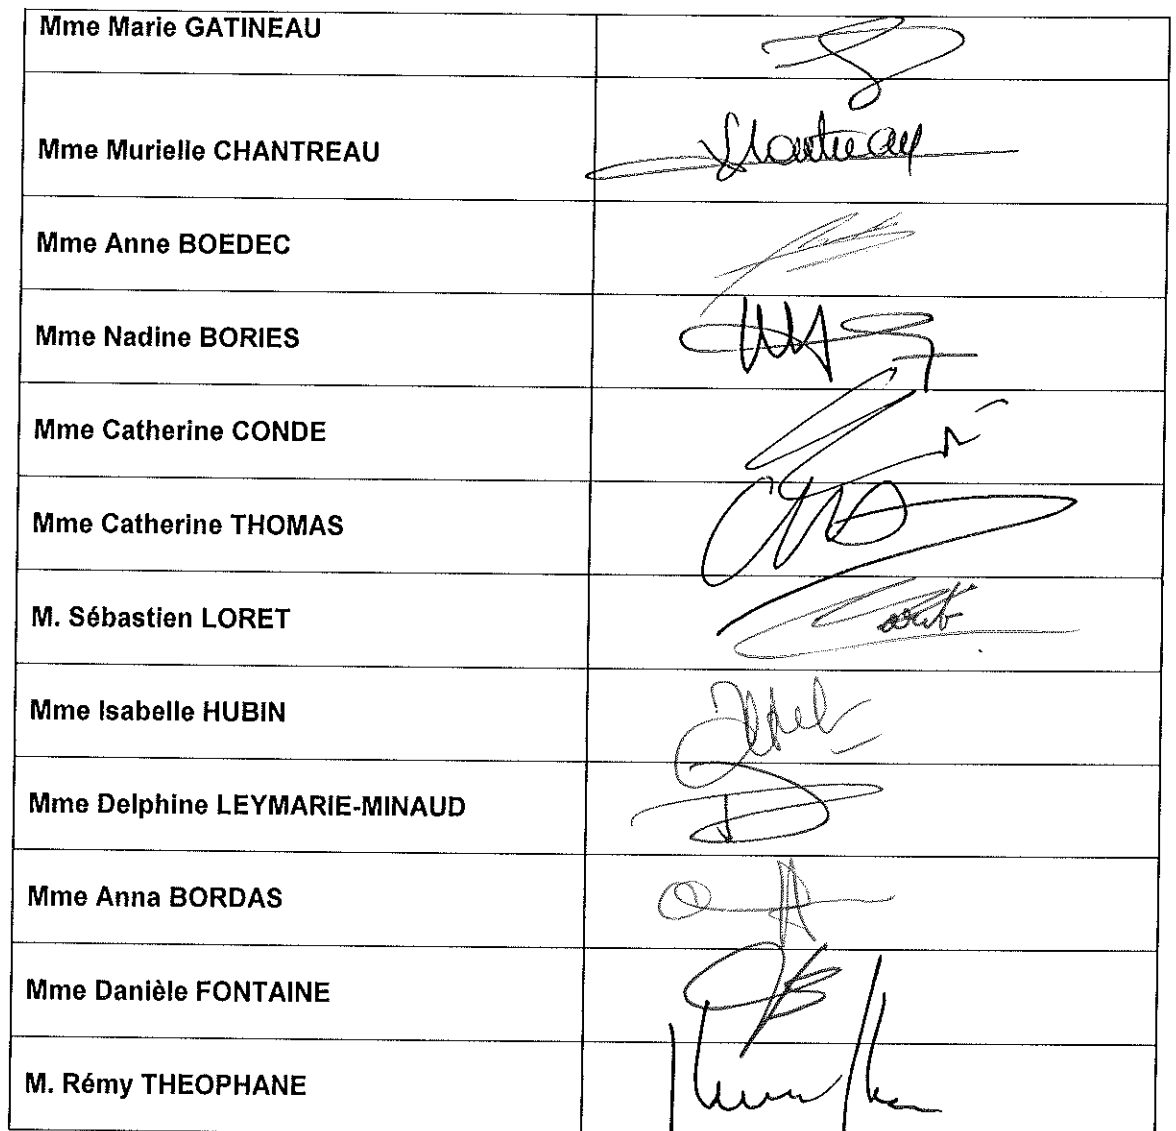 Mme Marie GATINEAU
Mme Murielle CHANTREAU
Chantreau
Mme Anne BOEDEC
Mme Nadine BORIES
Mme Catherine CONDE
Mme Catherine THOMAS
M. Sébastien LORET
Mme Isabelle HUBIN
Mme Delphine LEYMARIE-MINAUD
Mme Anna BORDAS
Mme Danièle FONTAINE
M. Rémy THEOPHANE